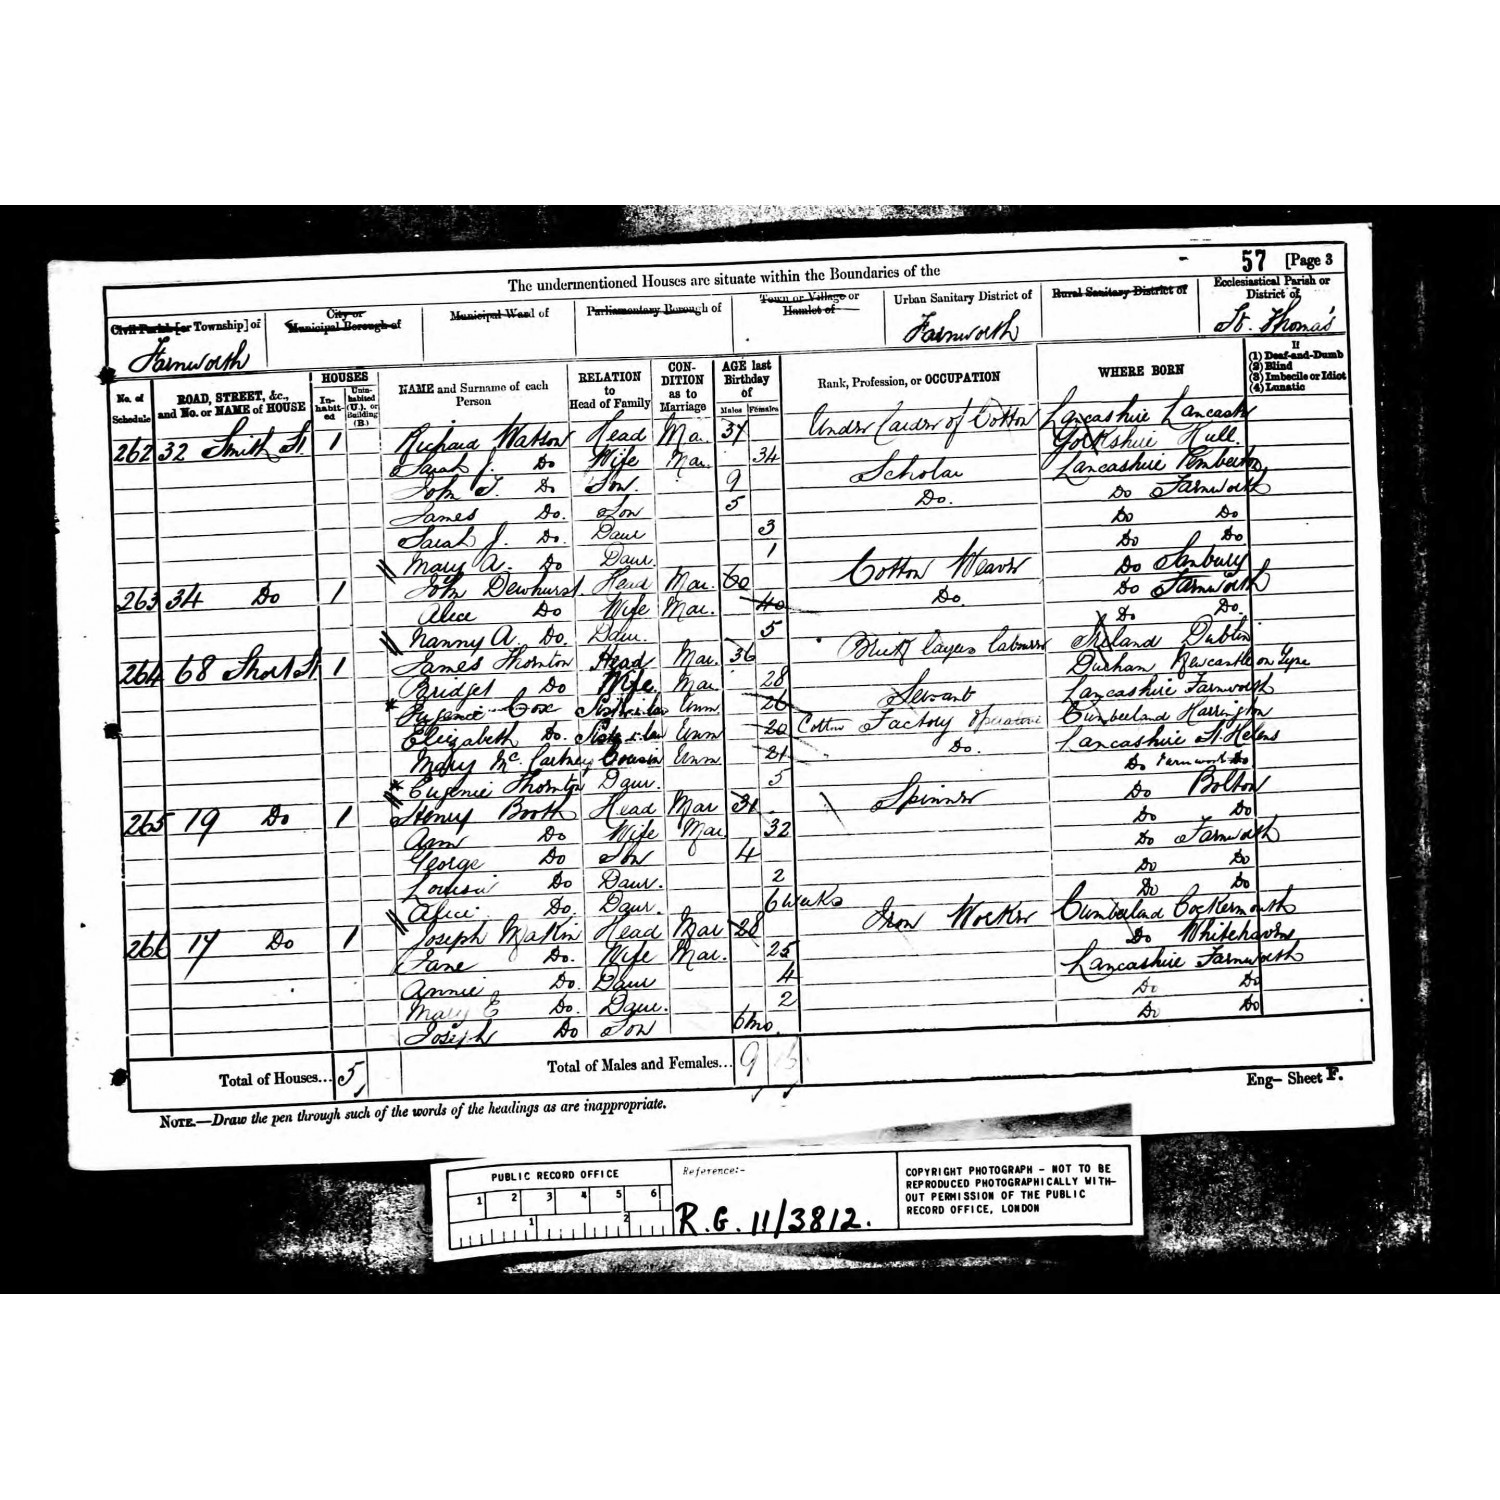 57 [Page 3
The undermentioned Houses are situate within the Boundaries of the
Civil Parish [or Township] of
City or Municipal Borough of
Municipal Ward of
Parliamentary Borough of
Town or Village or Hamlet of
Urban Sanitary District of
Rural Sanitary District of
Ecclesiastical Parish or District of
Farnworth Farnworth St. Thomas
No. of Schedule
ROAD, STREET, &c., and No. or NAME of HOUSE
HOUSES
Inhabited
Uninhabited (U.), or Building (B.)
NAME and Surname of each Person
RELATION to Head of Family
CONDITION as to Marriage
AGE last Birthday of
Males Females
Rank, Profession, or OCCUPATION
WHERE BORN
If
(1) Deaf-and-Dumb
(2) Blind
(3) Imbecile or Idiot
(4) Lunatic
262 32 Smith St 1 Richard Watson Head Mar. 37 Under Carder of Cotton Lancashire Lancaster
Sarah J. Do Wife Mar. 34 Yorkshire Hull.
John T. Do Son. 9 Scholar Lancashire Pemberton
James Do. Son 5 Do. Do Farnworth
Sarah J. Do. Daur 3 Do Do
Mary A. Do Daur. 1 Do Do
263 34 Do 1 John Dewhurst. Head Mar. 60 Cotton Weaver Do
Alice Do Wife Mar. 40 Do. Do Farnworth
Nanny A. Do. Daur. 5 Do Do.
264 68 Short St 1 James Thornton Head Mar. 36 Brick layers labourer Ireland Dublin
Bridget Do Wife Mar. 28 Durham Newcastle on Tyne
Eugenie Cox Sister in law Unm 26 Servant Lancashire Farnworth
Elizabeth Do. Sister in law Unm 20 Cotton Factory Operative Cumberland Harrington
Mary Mc. Cartney Cousin Unm 21 Do. Lancashire St. Helens
Eugenie Thornton Daur. 5 Do Farnworth Do
265 19 Do 1 Henry Booth Head Mar 31 Spinner Do Bolton
Ann Do Wife Mar. 32 Do Do
George Do Son 4 Do Farnworth
Louisa Do Daur. 2 Do Do
Alice Do. Daur. 6 weeks Do Do
266 17 Do 1 Joseph Makin Head Mar 28 Iron Worker Cumberland Cockermouth
Jane Do. Wife Mar. 25 Do Whitehaven
Annie Do. Daur 4 Lancashire Farnworth
Mary E Do. Daur. 2 Do Do
Joseph Do Son 6 mo. Do Do
Total of Houses... 5 Total of Males and Females... 9
Eng— Sheet F.
NOTE.—Draw the pen through such of the words of the headings as are inappropriate.
PUBLIC RECORD OFFICE
1 2 3 4 5 6
1 2
Reference:-
R.G. 11/3812.
COPYRIGHT PHOTOGRAPH - NOT TO BE
REPRODUCED PHOTOGRAPHICALLY WITH-
OUT PERMISSION OF THE PUBLIC
RECORD OFFICE, LONDON